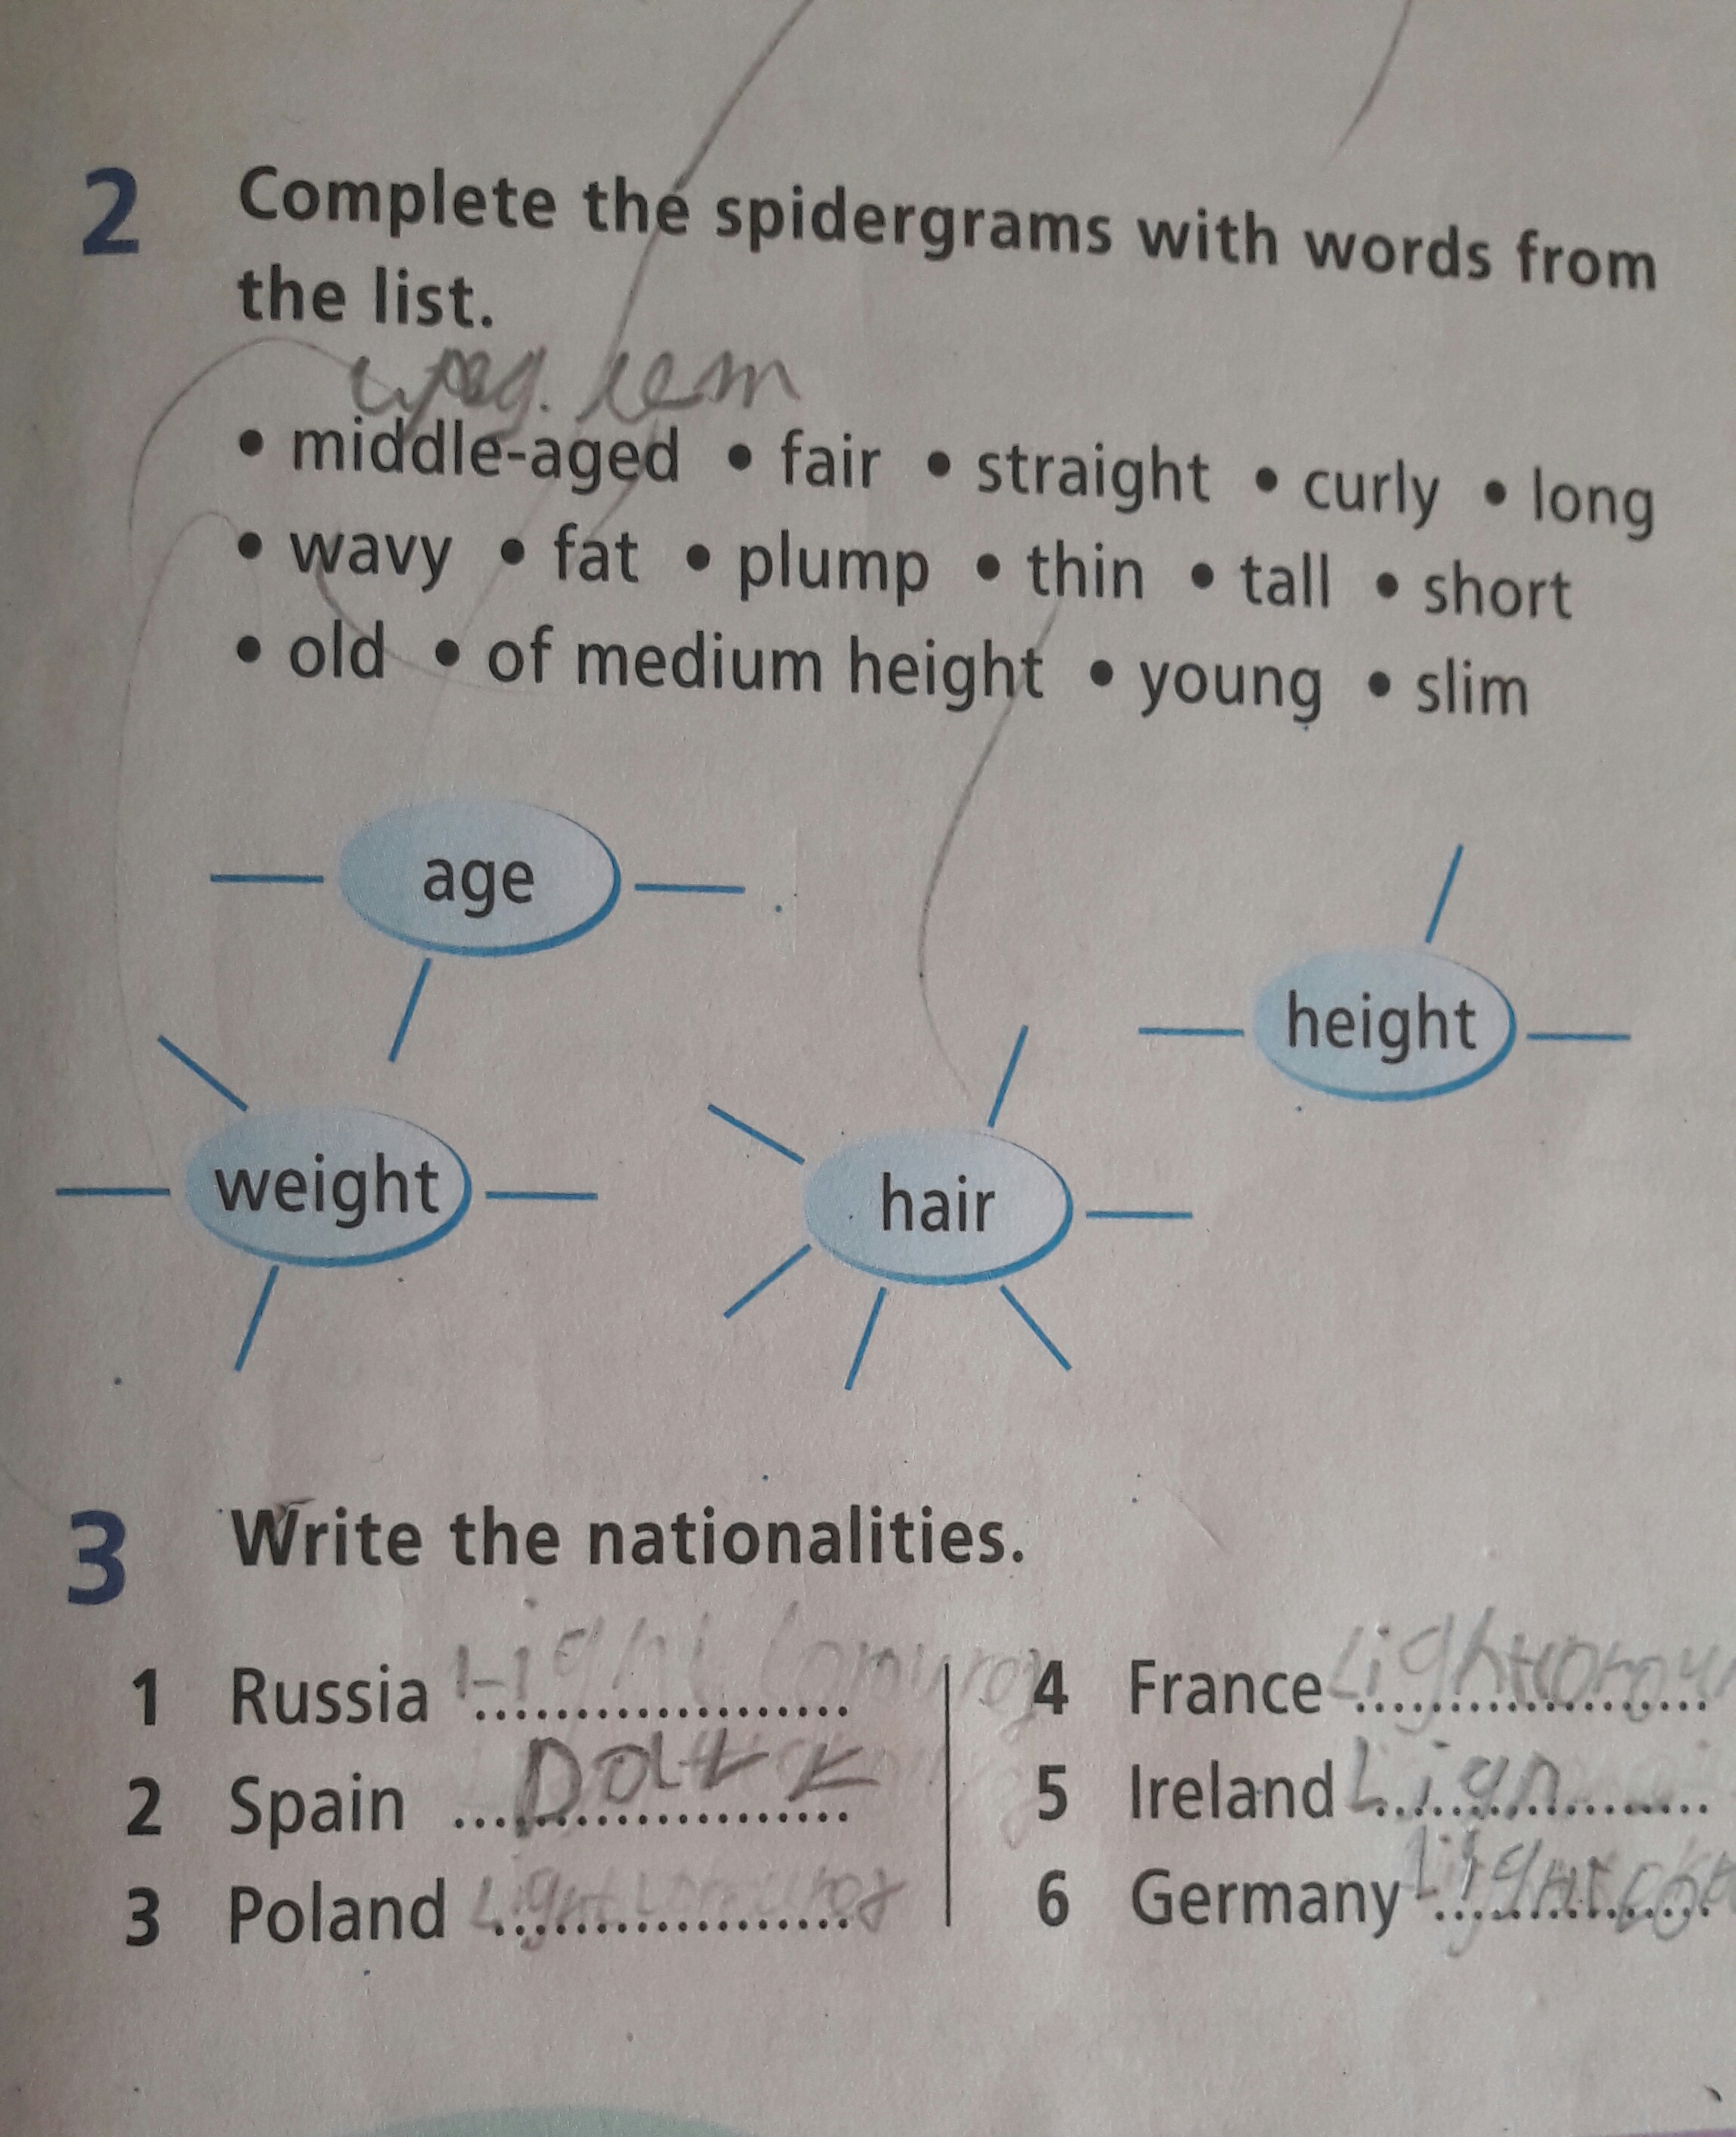 2 Complete the spidergrams with words from
the list.
• middle-aged • fair • straight • curly • long
• wavy • fat • plump • thin • tall • short
• old • of medium height • young • slim
age
height
weight
hair
3 Write the nationalities.
1 Russia ....................
4 France Light ....................
2 Spain ....................
5 Ireland Ligh ....................
3 Poland Light ....................
6 Germany Light ....................